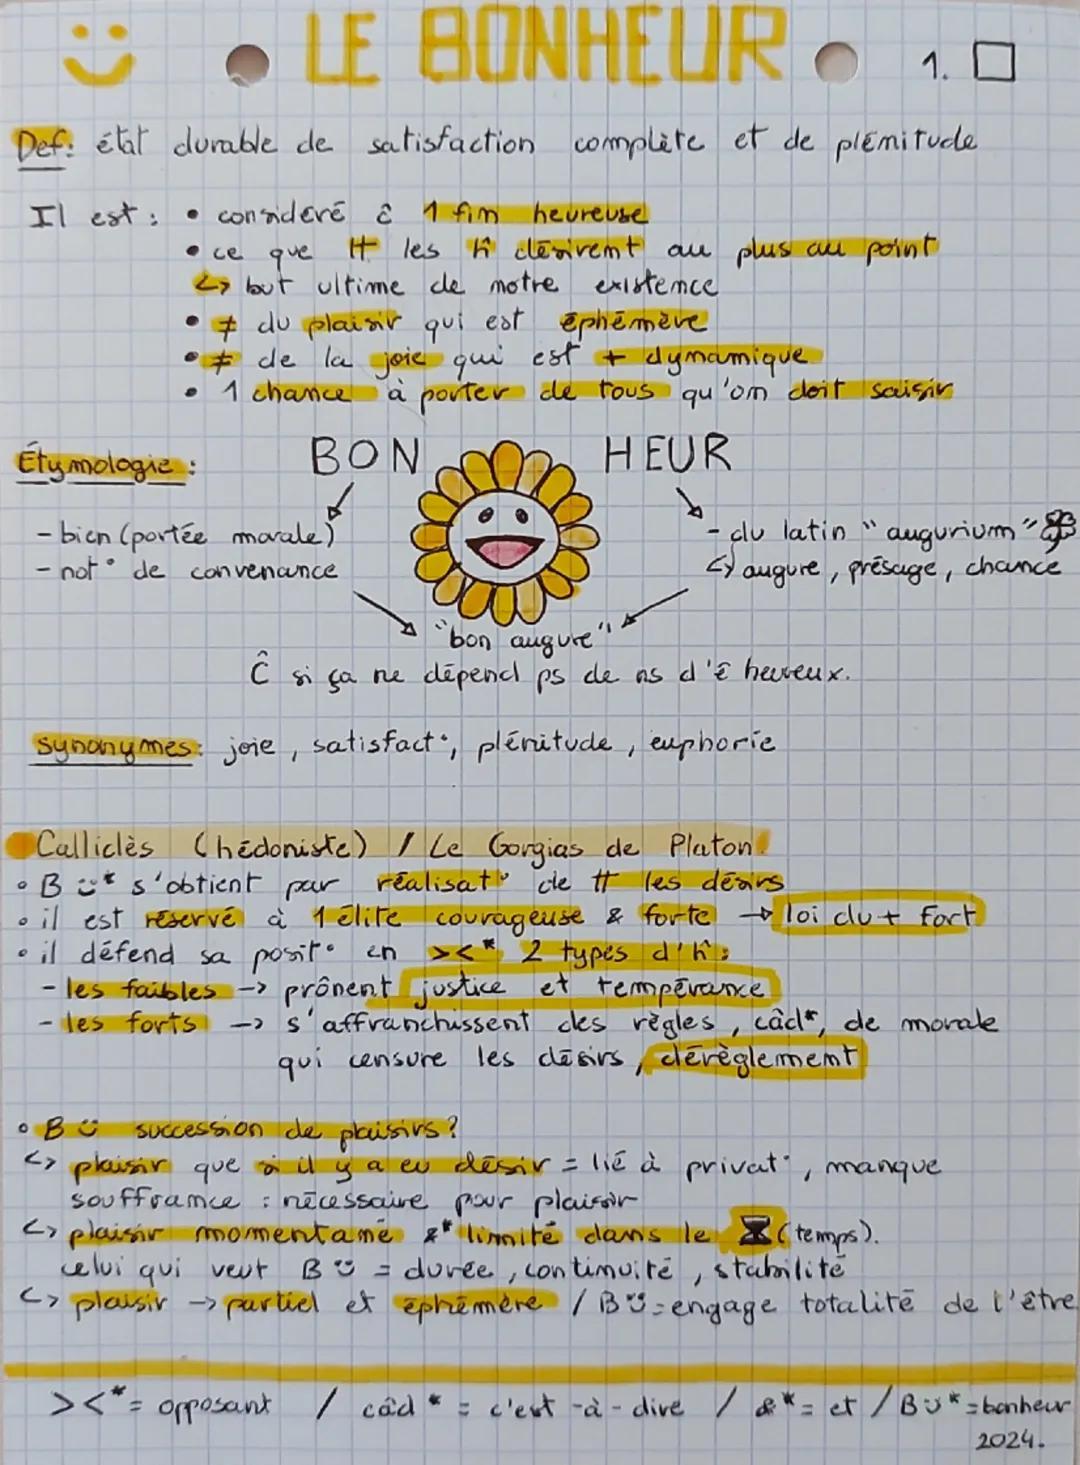 LE BONHEUR 1.
Def: état durable de satisfaction complète et de plénitude
Il est : • considéré ĉ 1 fin heureuse
• ce que tt les ĥ désirent au plus au point
↳ but ultime de notre existence
• ≠ du plaisir qui est éphémère
• ≠ de la joie qui est + dynamique
• 1 chance à porter de tous qu'on doit saisir
Étymologie : BON HEUR
- bien (portée morale)
- not° de convenance
- du latin "augurium"
↳ augure, présage, chance
"bon augure"
Ĉ si ça ne dépend ps de ns d'ê heureux.
synonymes: joie, satisfact°, plénitude, euphorie
Calliclès (hédoniste) / Le Gorgias de Platon.
• B ü* s'obtient par réalisat° de tt les désirs
• il est réservé à 1 élite courageuse & forte → loi du + fort
• il défend sa posit° en ><* 2 types d'ĥ :
- les faibles -> prônent justice et tempérance
- les forts -> s'affranchissent des règles, càd*, de morale
qui censure les désirs, dérèglement
• B ü succession de plaisirs ?
↳ plaisir que si il y a eu désir = lié à privat°, manque
souffrance : nécessaire pour plaisir
↳ plaisir momentané &* limité dans le ⌛ (temps).
celui qui veut B ü = durée, continuité, stabilité
↳ plaisir -> partiel et éphémère / B ü = engage totalité de l'être
><* = opposant / càd* = c'est-à-dire / &* = et / B ü* = bonheur
2024.